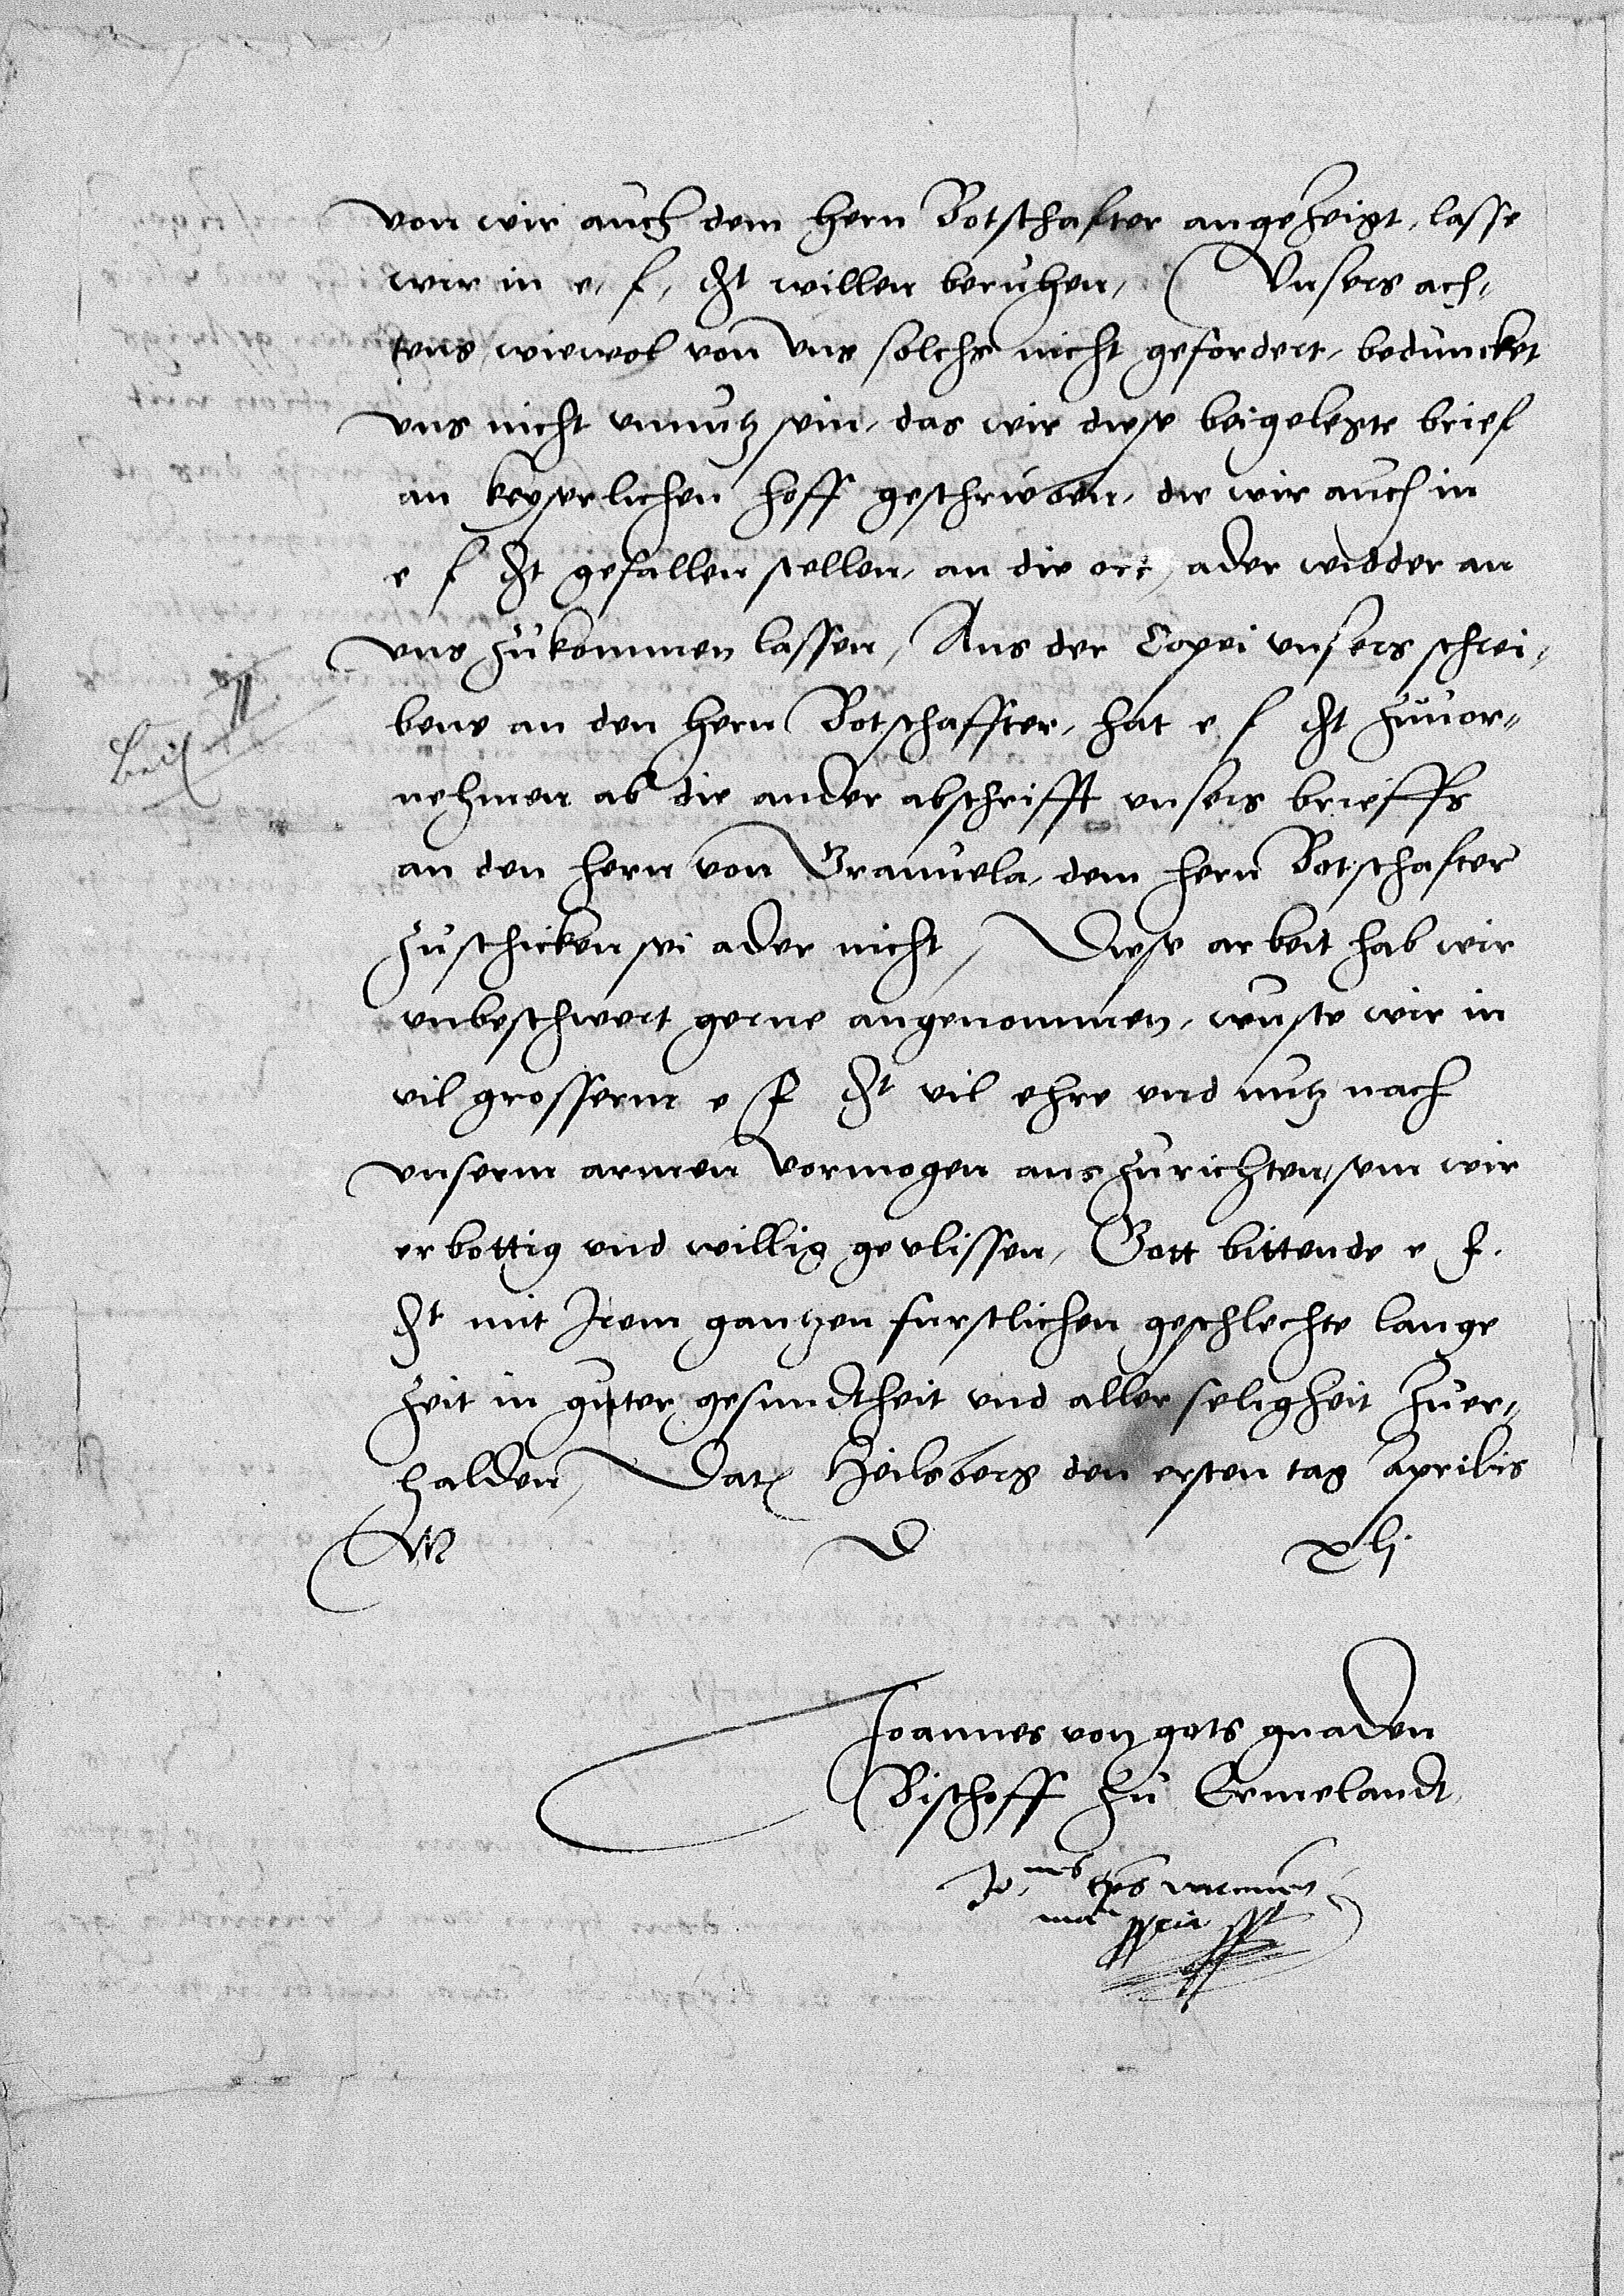 von wir auch dem hern Botschaffter angezeigt, lasse
wir in e. f. dt willen beruhen, Unsers ach,
tens, wiewol von uns solchs nicht gefordert, beduncket
uns nicht unnutz sein, das wir diese beigelegte brief
an keyserlichen hoff geschriben, die wir auch in
e f dt gefallen stellen, an die ort, ader widder an
uns zukommen lassen, Aus der Copei unsers schrei,
Beil II
bens an den hern Botschaffter, hat e f dt zuuor,,
nehmen ab die ander abschrifft unsers brieffs
an den hern von Granuela, dem hern Botschaffter
zuschicken sei ader nicht, Diese arbeit hab wir
unbeschwert gerne angenommen, wuste wir in
vil grosserm e f dt vil ehre und nutz nach
unserm armen vormogen aus zurichten, sein wir
erbottig und willig gevlissen, Gott bittende e f.
dt mit Irem gantzen furstlichen geschlechte lange
zeit in guter gesundtheit und aller seligheit zuer,,
halden, Dat Heilsberg den ersten tag Aprilis
M D xlj
Joannes von gots gnaden
Bischoff zu Ermelandt
Jo. eps
manu ppria sst